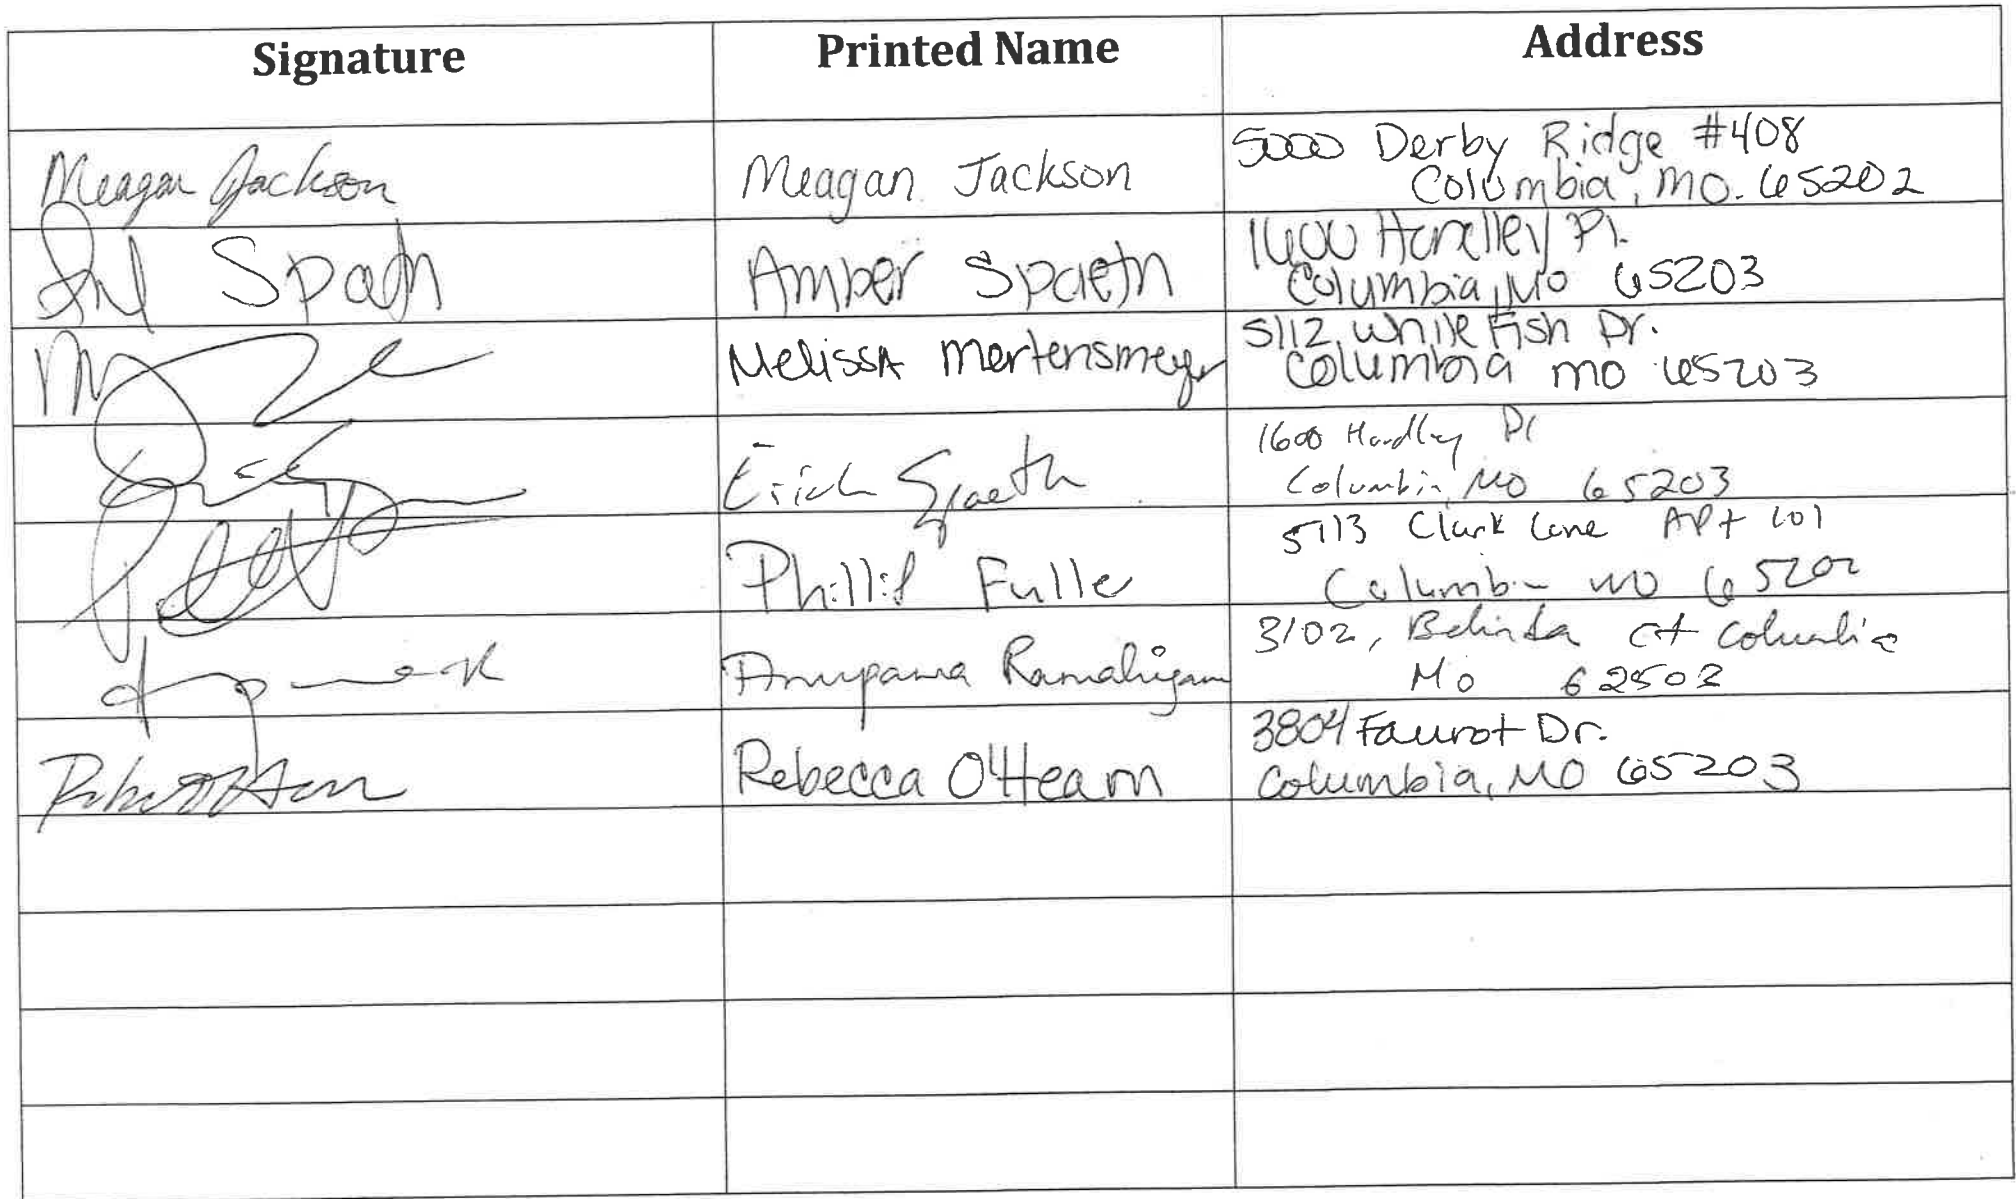 Signature Printed Name Address
Meagan Jackson Meagan Jackson 5000 Derby Ridge #408
Columbia, MO. 65202
Spaeth Amber Spaeth 1600 Handley Pl.
Columbia, MO 65203
Melissa Mertensmeyer 5112 White Fish Dr.
Columbia MO 65203
Erich Spaeth 1600 Handley Pl
Columbia, MO 65203
Phillip Fuller 5113 Clark Lane APt 101
Columbia MO 65202
Anupama Ramalingam 3102, Belinda Ct Columbia
Mo 62503
Rebecca O'Hearn 3804 Faurot Dr.
Columbia, MO 65203